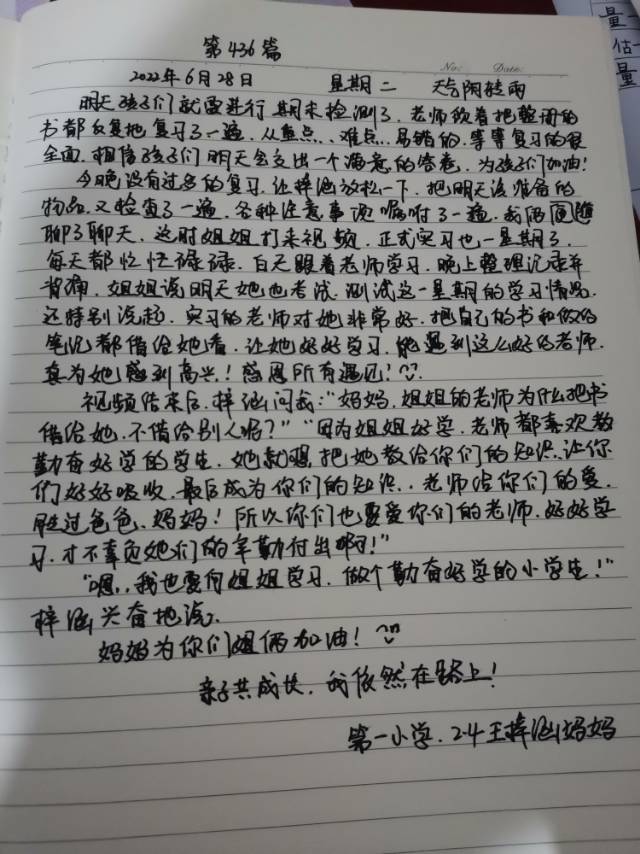 第436篇
No: Date:
2022年6月28日 星期二 天气阴转雨
明天孩子们就要进行期末检测了,老师领着把整册的
书都反复地复习了一遍,从重点、难点、易错的,等等复习的很
全面,相信孩子们明天会交出一个满意的答卷,为孩子们加油!
今晚没有过多的复习,让梓涵放松一下,把明天该准备的
物品又检查了一遍,各种注意事项嘱咐了一遍,我俩
聊了聊天,这时姐姐打来视频,正式实习也一星期了,
每天都忙忙碌碌,白天跟着老师学习,晚上整理记录并
背诵,姐姐说明天她也考试,测试这一星期的学习情况,
还特别说起,实习的老师对她非常好,把自己的书和
笔记都借给她看,让她好好学习,能遇到这么好的老师,
真为她感到高兴!感恩所有遇见!
视频结束后,梓涵问我:“妈妈,姐姐的老师为什么把书
借给她,不借给别人呢?”“因为姐姐好学,老师都喜欢教
勤奋好学的学生,她就想把她教给你们的知识,让你
们好好吸收,最后成为你们的知识,老师给你们的爱,
胜过爸爸、妈妈!所以你们也要爱你们的老师,好好学
习,才不辜负她们的辛勤付出啊!”
“嗯,我也要向姐姐学习,做个勤奋好学的小学生!”
梓涵兴奋地说。
妈妈为你们姐俩加油!
亲子共成长,我依然在路上!
第一小学,2.4王梓涵妈妈
量
估
量